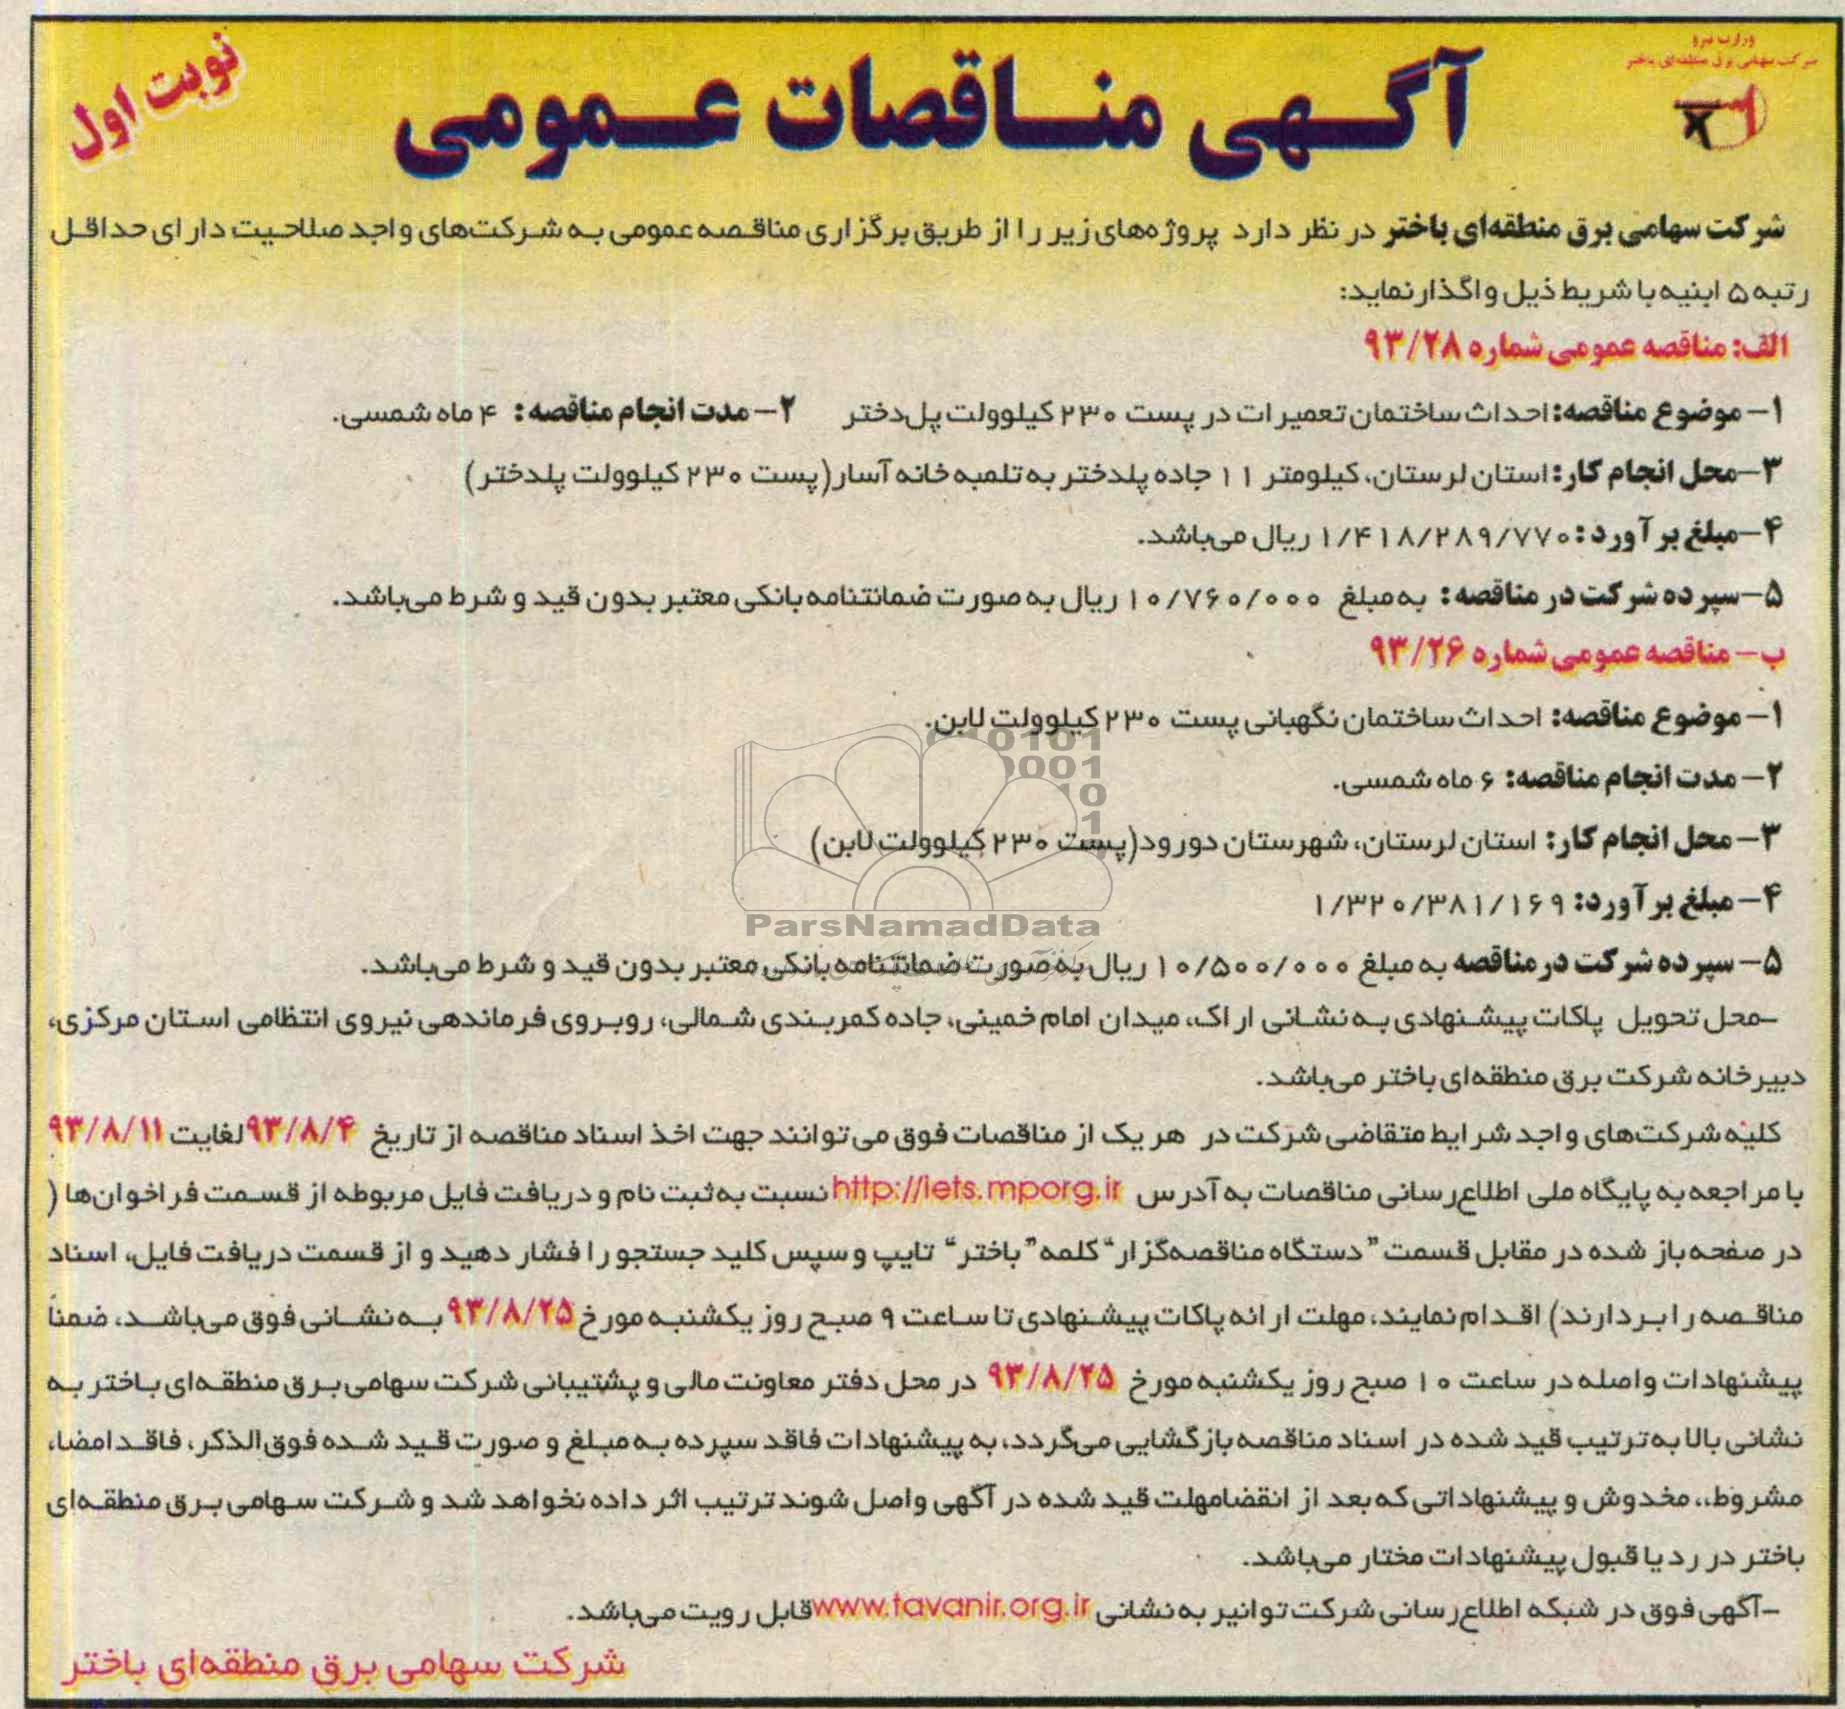 وزارت نیرو
شرکت سهامی برق منطقه‌ای باختر
نوبت اول
آگهی مناقصات عمومی
شرکت سهامی برق منطقه‌ای باختر در نظر دارد پروژه‌های زیر را از طریق برگزاری مناقصه عمومی به شرکت‌های واجد صلاحیت دارای حداقل
رتبه ۵ ابنیه با شریط ذیل واگذار نماید:
الف: مناقصه عمومی شماره ۹۳/۲۸
۱- موضوع مناقصه: احداث ساختمان تعمیرات در پست ۲۳۰ کیلوولت پل‌دختر ۲- مدت انجام مناقصه: ۴ ماه شمسی.
۳- محل انجام کار: استان لرستان، کیلومتر ۱۱ جاده پلدختر به تلمبه خانه آسار (پست ۲۳۰ کیلوولت پلدختر)
۴- مبلغ برآورد: ۱/۴۱۸/۲۸۹/۷۷۰ ریال می‌باشد.
۵- سپرده شرکت در مناقصه: به مبلغ ۱۰/۷۶۰/۰۰۰ ریال به صورت ضمانتنامه بانکی معتبر بدون قید و شرط می‌باشد.
ب- مناقصه عمومی شماره ۹۳/۲۶
۱- موضوع مناقصه: احداث ساختمان نگهبانی پست ۲۳۰ کیلوولت لابن.
۲- مدت انجام مناقصه: ۶ ماه شمسی.
۳- محل انجام کار: استان لرستان، شهرستان دورود (پست ۲۳۰ کیلوولت لابن)
۴- مبلغ برآورد: ۱/۳۲۰/۳۸۱/۱۶۹
ParsNamadData
۵- سپرده شرکت در مناقصه به مبلغ ۱۰/۵۰۰/۰۰۰ ریال به صورت ضمانتنامه بانکی معتبر بدون قید و شرط می‌باشد.
-محل تحویل پاکات پیشنهادی به نشانی اراک، میدان امام خمینی، جاده کمربندی شمالی، روبروی فرماندهی نیروی انتظامی استان مرکزی،
دبیرخانه شرکت برق منطقه‌ای باختر می‌باشد.
کلیه شرکت‌های واجد شرایط متقاضی شرکت در هر یک از مناقصات فوق می‌توانند جهت اخذ اسناد مناقصه از تاریخ ۹۳/۸/۴ لغایت ۹۳/۸/۱۱
با مراجعه به پایگاه ملی اطلاع‌رسانی مناقصات به آدرس http://iets.mporg.ir نسبت به ثبت نام و دریافت فایل مربوطه از قسمت فراخوان‌ها (
در صفحه باز شده در مقابل قسمت "دستگاه مناقصه‌گزار" کلمه "باختر" تایپ و سپس کلید جستجو را فشار دهید و از قسمت دریافت فایل، اسناد
مناقصه را بردارند) اقدام نمایند، مهلت ارائه پاکات پیشنهادی تا ساعت ۹ صبح روز یکشنبه مورخ ۹۳/۸/۲۵ به نشانی فوق می‌باشد، ضمناً
پیشنهادات واصله در ساعت ۱۰ صبح روز یکشنبه مورخ ۹۳/۸/۲۵ در محل دفتر معاونت مالی و پشتیبانی شرکت سهامی برق منطقه‌ای باختر به
نشانی بالا به ترتیب قید شده در اسناد مناقصه بازگشایی می‌گردد، به پیشنهادات فاقد سپرده به مبلغ و صورت قید شده فوق‌الذکر، فاقد امضا،
مشروط،، مخدوش و پیشنهاداتی که بعد از انقضا مهلت قید شده در آگهی واصل شوند ترتیب اثر داده نخواهد شد و شرکت سهامی برق منطقه‌ای
باختر در رد یا قبول پیشنهادات مختار می‌باشد.
-آگهی فوق در شبکه اطلاع‌رسانی شرکت توانیر به نشانی www.tavanir.org.ir قابل رویت می‌باشد.
شرکت سهامی برق منطقه‌ای باختر